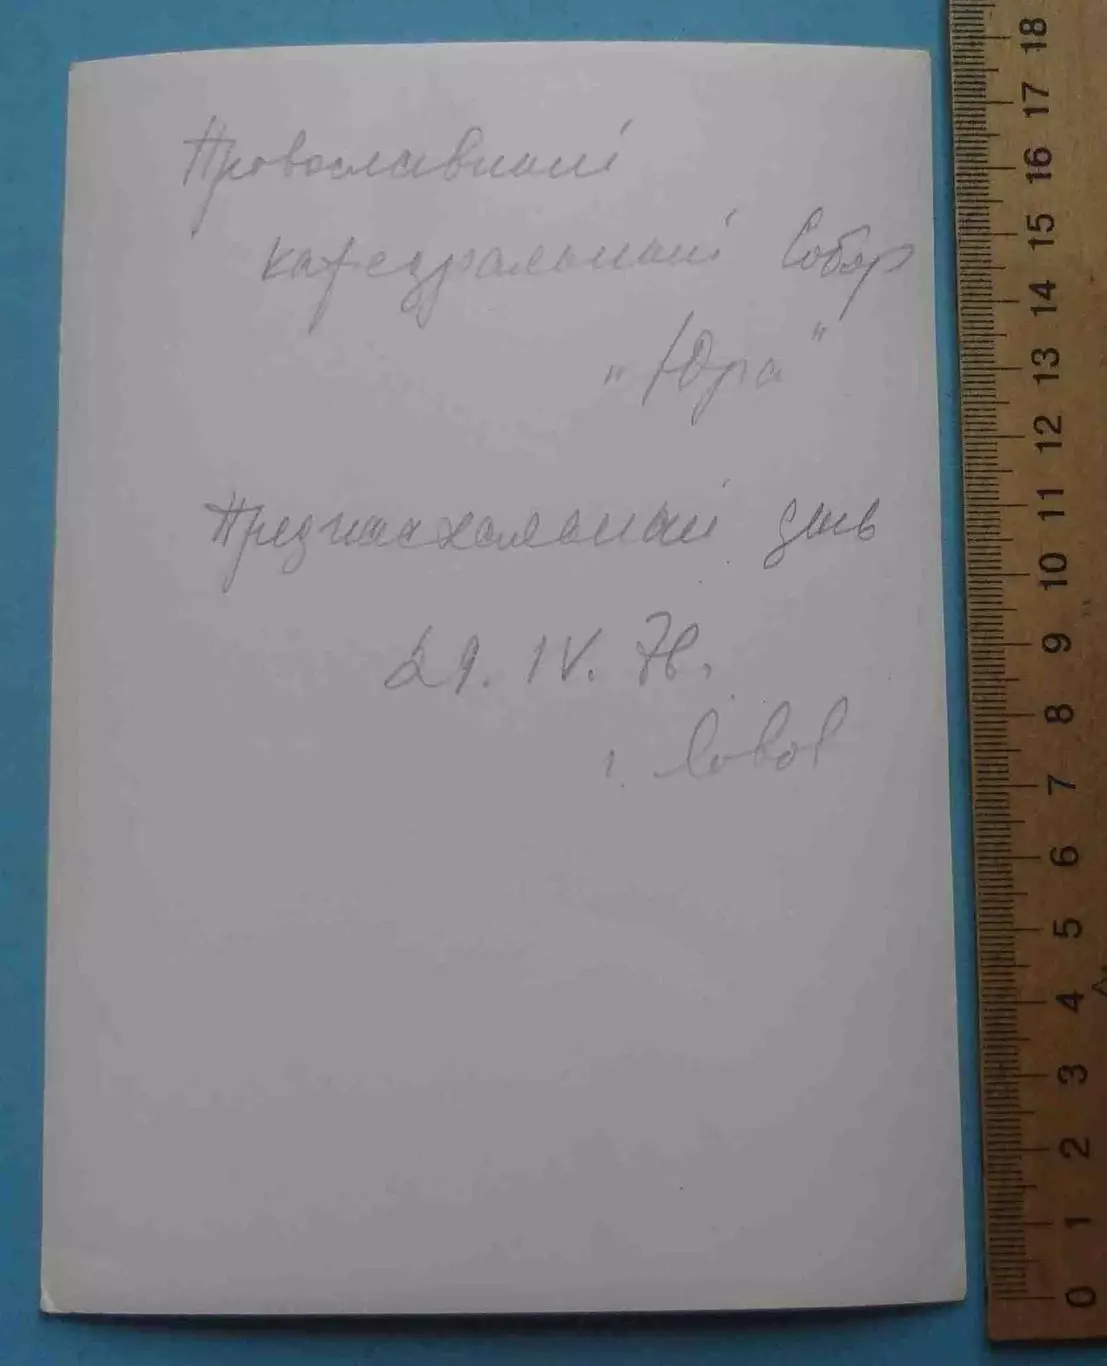 Православный
кафедральный Собор
"Юра"
Предпасхальный день
29. IV. 78.
г. Львов
18
17
16
15
14
13
12
11
10
9
8
7
6
5
4
3
2
1
0